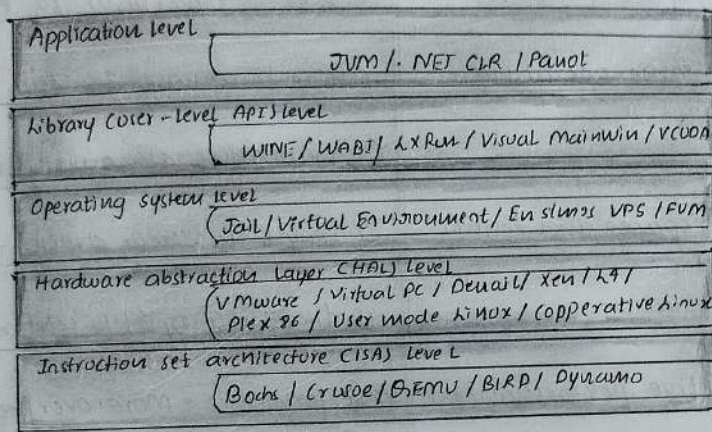 Application level
JVM / . NET CLR / Panot
Library (user-level API) level
WINE / WABI / LxRun / Visual MainWin / VCUDA
Operating system level
Jail / Virtual Environment / Ensim's VPS / FVM
Hardware abstraction Layer (HAL) level
VMware / Virtual PC / Denail / Xen / L4 /
Plex 86 / User mode Linux / Copperative Linux
Instruction set architecture (ISA) level
Bochs / Crusoe / QEMU / BIRD / Dynamo